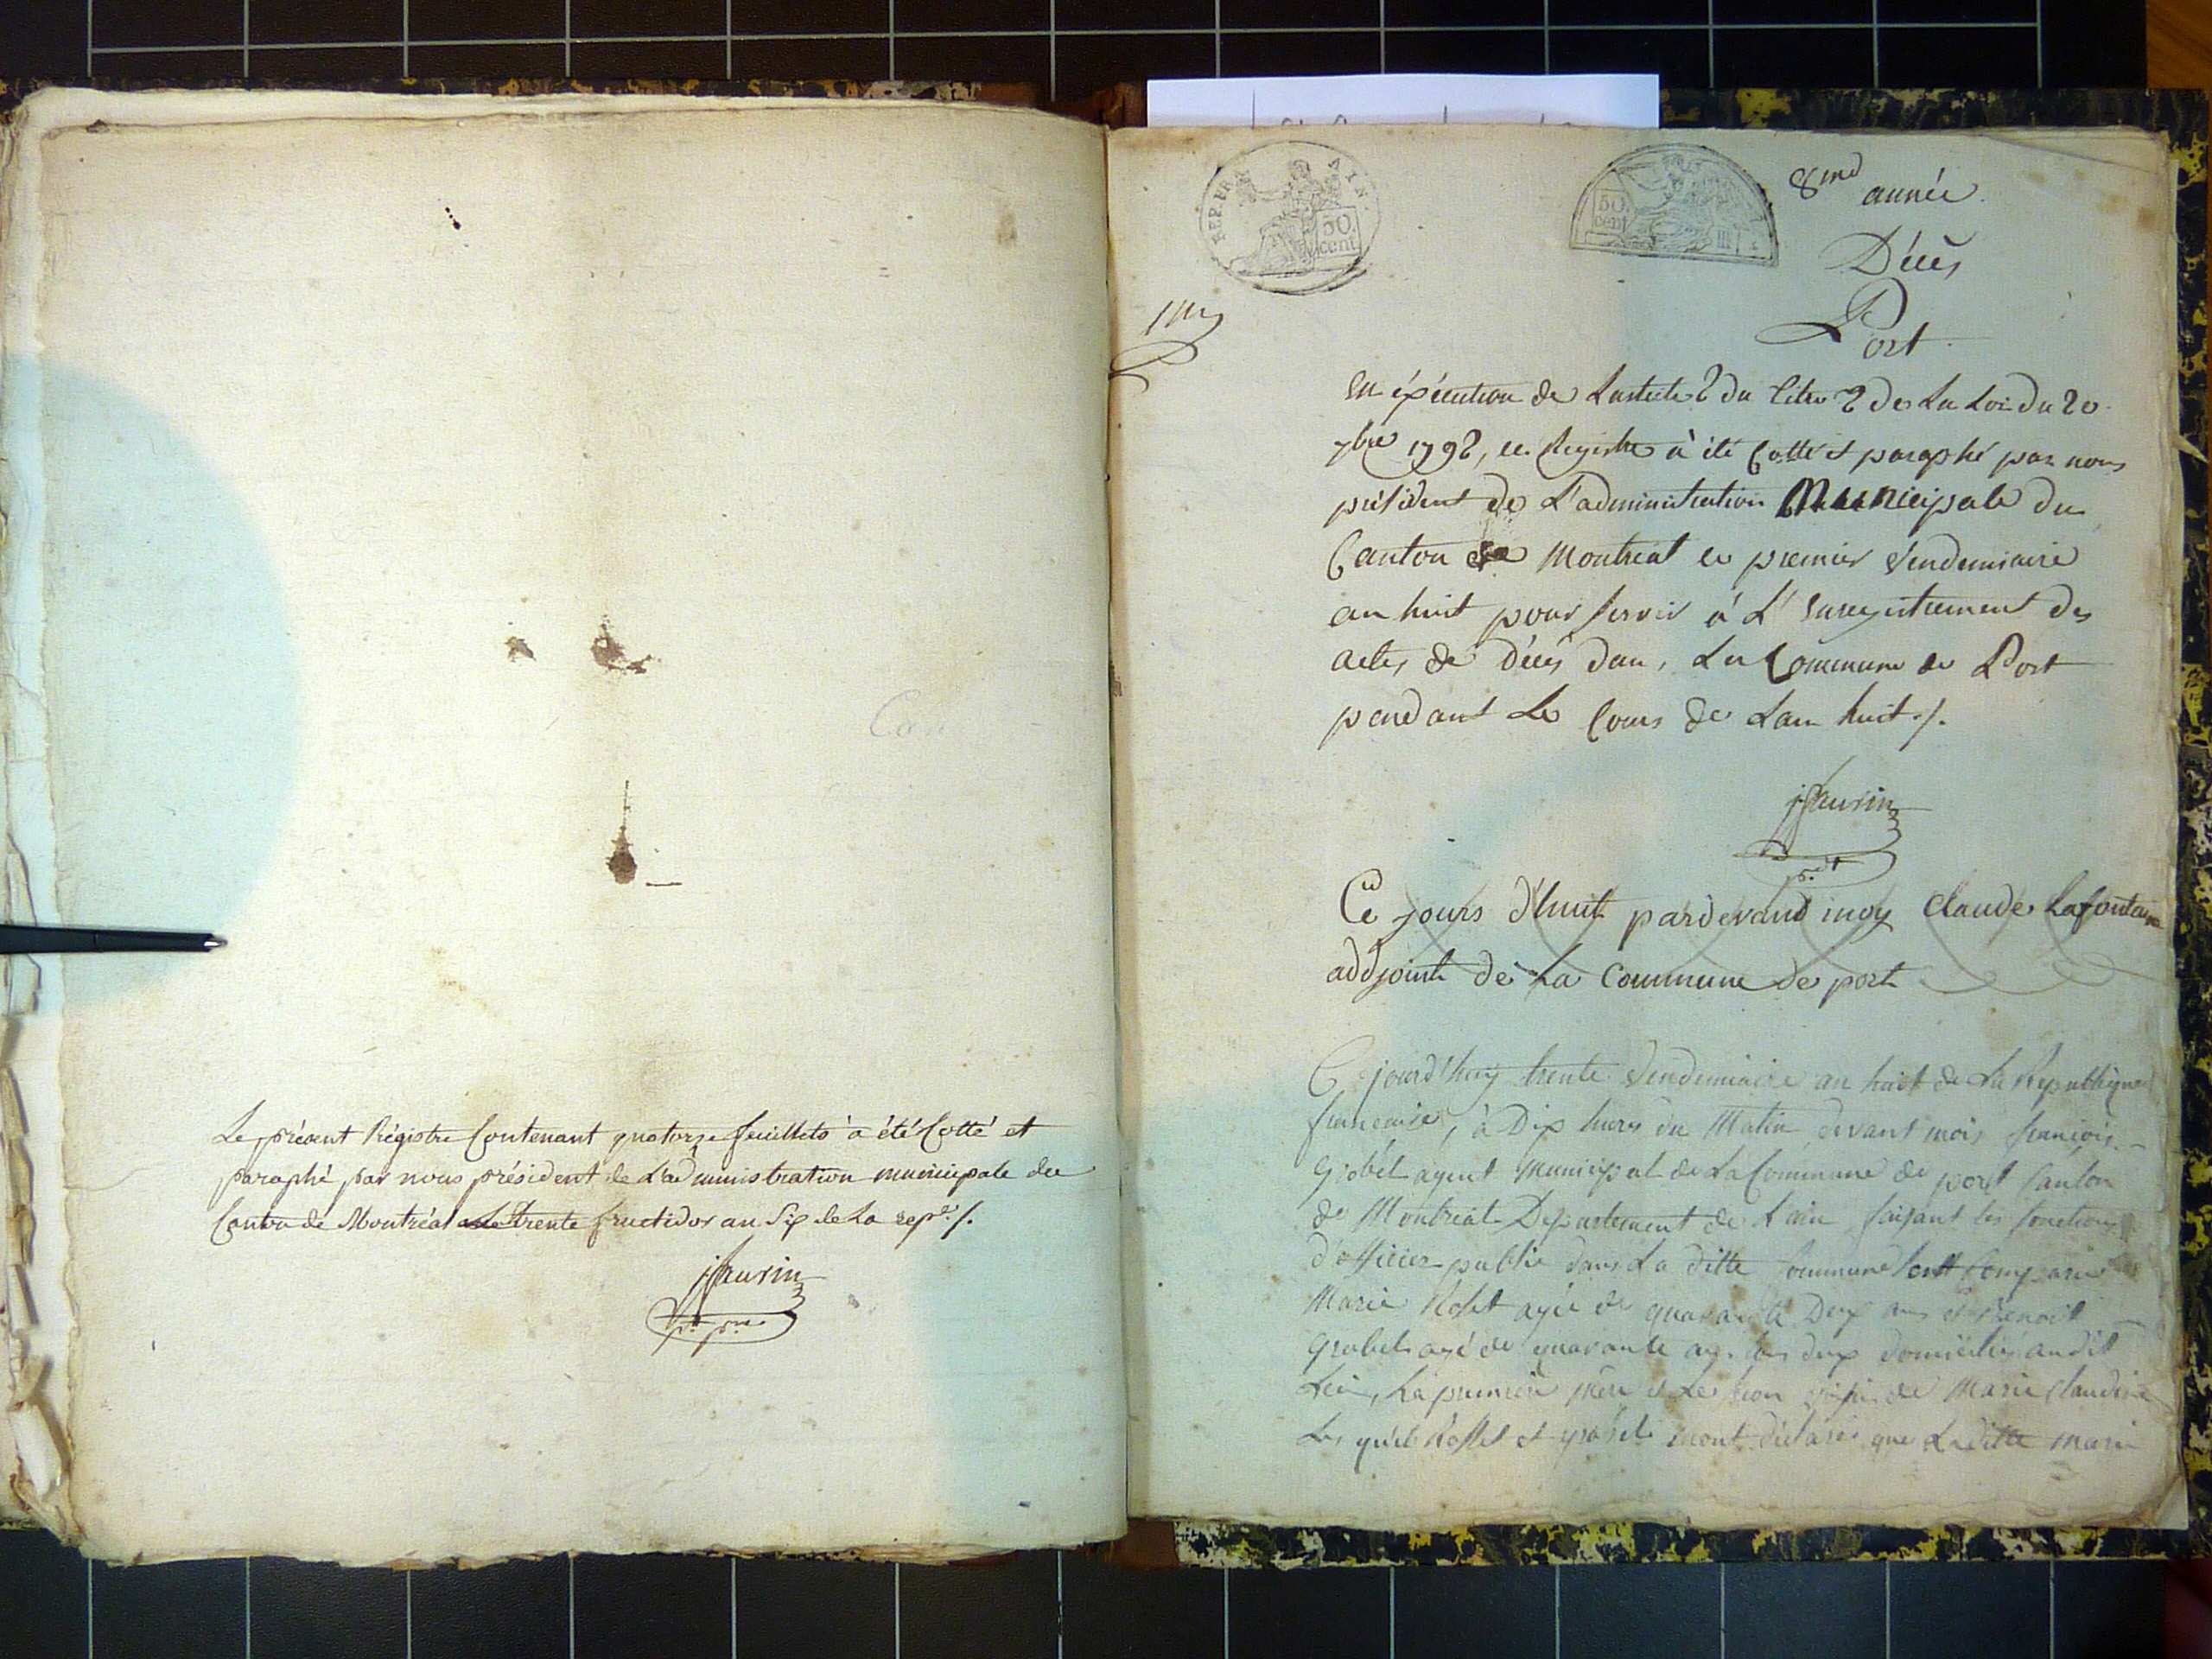 Le présent Régistre Contenant quatorze feuillets a été Cotté et
paraphé par nous président de L'administration municipale du
Canton de Montréal le trente fructidor an Six de la repe. /.
jfaurin
REP. FRA
50
cent
50
cent
8me année
Décès
Port
1er
En éxécution de Larticle 2 du titre 2 de La Loi du 20
7bre 1792, ce Registre à été Cotté et paraphé par nous
président de L'administration Municipale du
Canton de Montréal le premier Vendemiaire
an huit pour servir à L'enregistrement des
actes de Décès dans La Commune de Port
pendant Le Cours de Lan huit ./.
jfaurin
Ce jours d'huit pardevand moy Claude Lafontaine
addjoint de La Commune de port
Cejourd'huy trente Vendemiaire an huit de La Republique
francaise, à Dix hures du Matin devant moi, françois
Grobet agent Municipal de La Commune de port Canton
de Montréal Departement de Lain, faisant les fonctions
d'officier public dans La ditte Commune Sont Comparus
Marie Rosset agée de quarante Deux ans et Benoit
Grobet agé de quarante ans tous deux domiciliés audit
Lieu, La premiere mère et Le Second de Marie Claudine
Les quels Rosset et Grobet mont déclaré que Laditte Marie